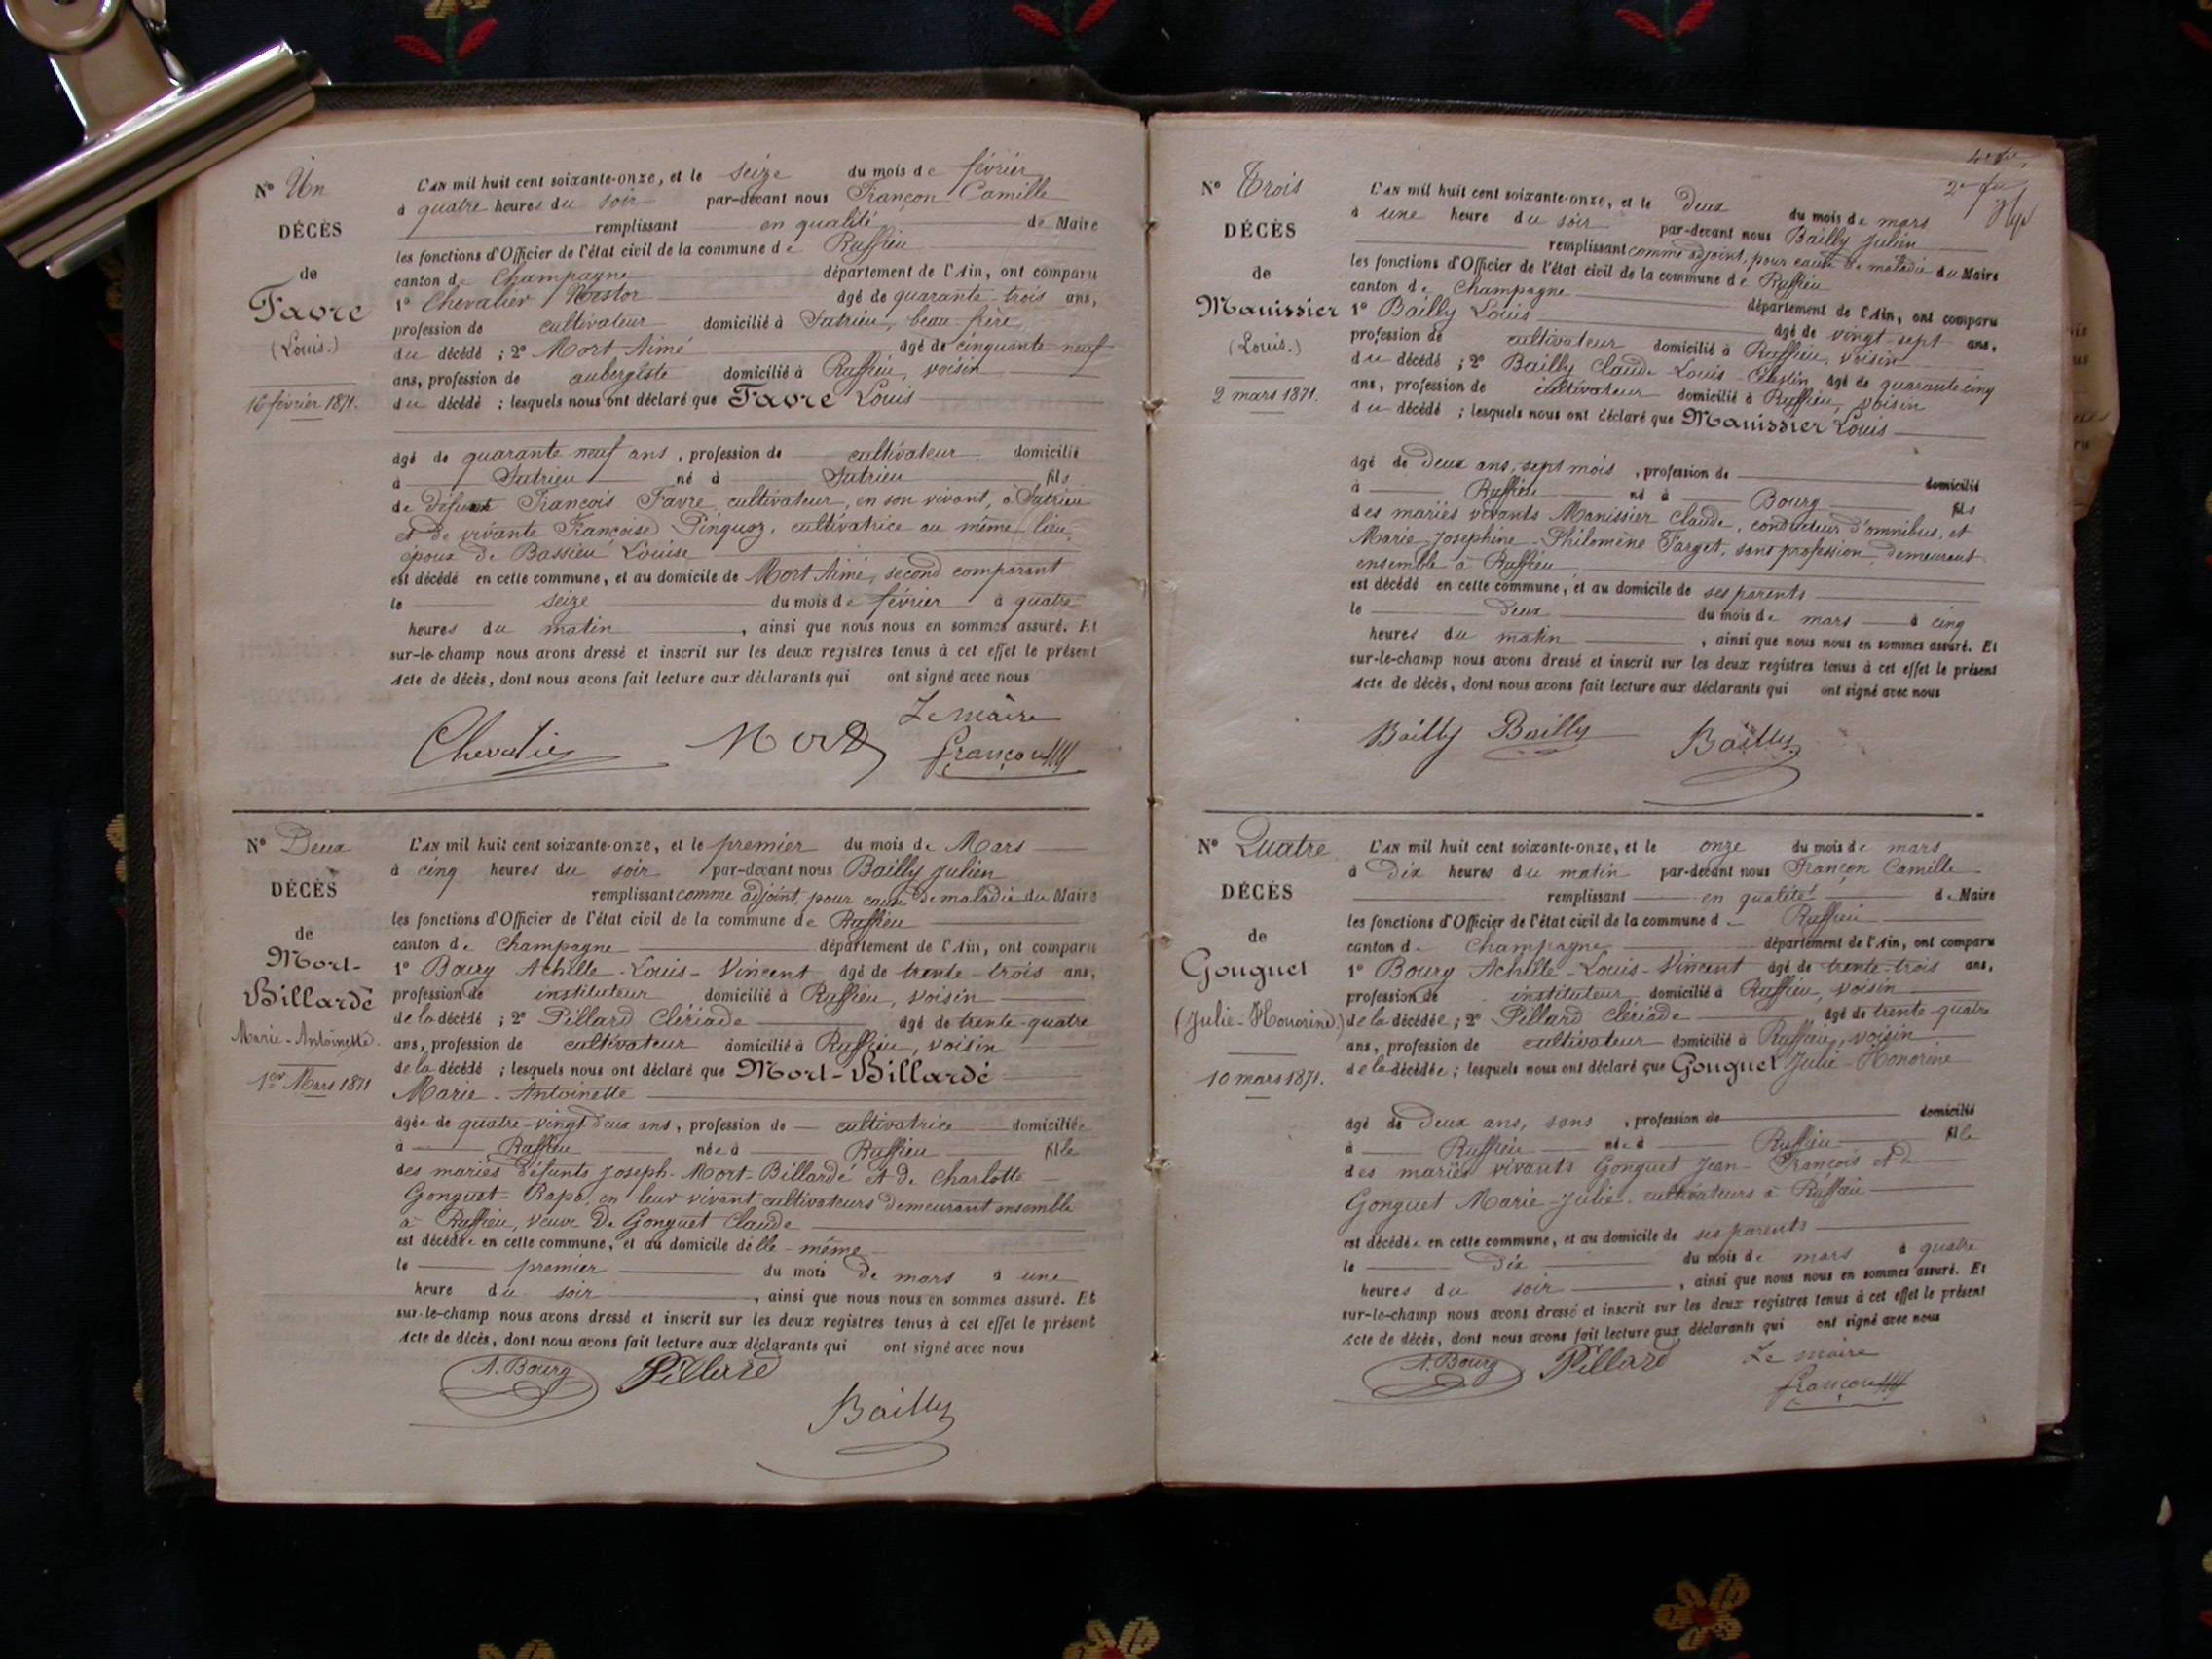 N° Un
DÉCÈS
de
Favre
(Louis.)
16 février 1871.
L'AN mil huit cent soixante-onze, et le seize du mois de février
à quatre heures du soir par-devant nous Françon Camille
remplissant en qualité de Maire
les fonctions d'Officier de l'état civil de la commune de Ruffieu
canton de Champagne département de l'Ain, ont comparu
1° Chevalier Nestor âgé de quarante-trois ans,
profession de cultivateur domicilié à Sutrieu, beau-frère
du décédé ; 2° Mort Aimé âgé de cinquante neuf
ans, profession de aubergiste domicilié à Ruffieu, voisin
du décédé ; lesquels nous ont déclaré que Favre Louis
âgé de quarante neuf ans, profession de cultivateur domicilié
à Sutrieu né à Sutrieu fils
de défunt François Favre, cultivateur, en son vivant, à Sutrieu
et de vivante Françoise Pinguoz, cultivatrice au même lieu,
époux de Bassieu Louise
est décédé en cette commune, et au domicile de Mort Aimé, second comparant
le seize du mois de février à quatre
heures du matin, ainsi que nous nous en sommes assuré. Et
sur-le-champ nous avons dressé et inscrit sur les deux registres tenus à cet effet le présent
Acte de décès, dont nous avons fait lecture aux déclarants qui ont signé avec nous
Le maire
Chevalier Mort Françon
N° Deux
DÉCÈS
de
Mort-
Billardé
Marie-Antoinette.
1er Mars 1871
L'AN mil huit cent soixante-onze, et le premier du mois de Mars
à cinq heures du soir par-devant nous Bailly Julien
remplissant comme adjoint, pour cause de maladie du Maire
les fonctions d'Officier de l'état civil de la commune de Ruffieu
canton de Champagne département de l'Ain, ont comparu
1° Bourg Achille-Louis-Vincent âgé de trente-trois ans,
profession de instituteur domicilié à Ruffieu, voisin
de la décédé ; 2° Pillard Clériade âgé de trente-quatre
ans, profession de cultivateur domicilié à Ruffieu, voisin
de la décédé ; lesquels nous ont déclaré que Mort-Billardé
Marie-Antoinette
âgée de quatre-vingt deux ans, profession de cultivatrice domiciliée
à Ruffieu née à Ruffieu fille
des mariés défunts Joseph-Mort-Billardé et de Charlotte
Gonguet-Rapa, en leur vivant cultivateurs demeurant ensemble
à Ruffieu, veuve de Gonguet Claude
est décédée en cette commune, et au domicile d'elle-même
le premier du mois de mars à une
heure du soir, ainsi que nous nous en sommes assuré. Et
sur-le-champ nous avons dressé et inscrit sur les deux registres tenus à cet effet le présent
Acte de décès, dont nous avons fait lecture aux déclarants qui ont signé avec nous
A. Bourg Pillard
Bailly
N° Trois
DÉCÈS
de
Manissier
(Louis.)
2 mars 1871.
L'AN mil huit cent soixante-onze, et le deux du mois de mars
à une heure du soir par-devant nous Bailly Julien
remplissant comme adjoint, pour cause de maladie du Maire
les fonctions d'Officier de l'état civil de la commune de Ruffieu
canton de Champagne département de l'Ain, ont comparu
1° Bailly Louis âgé de vingt-sept ans,
profession de cultivateur domicilié à Ruffieu, voisin
du décédé ; 2° Bailly Claude-Louis-Célestin âgé de quarante cinq
ans, profession de cultivateur domicilié à Ruffieu, voisin
du décédé ; lesquels nous ont déclaré que Manissier Louis
âgé de deux ans, sept mois, profession de domicilié
à Ruffieu né à Bourg fils
des mariés vivants Manissier Claude, conducteur d'omnibus, et
Marie-Josephine-Philomène Target, sans profession, demeurant
ensemble à Ruffieu
est décédé en cette commune, et au domicile de ses parents
le deux du mois de mars à cinq
heures du matin, ainsi que nous nous en sommes assuré. Et
sur-le-champ nous avons dressé et inscrit sur les deux registres tenus à cet effet le présent
Acte de décès, dont nous avons fait lecture aux déclarants qui ont signé avec nous
Bailly Bailly Bailly
N° Quatre
DÉCÈS
de
Gonguet
(Julie-Honorine)
10 mars 1871.
L'AN mil huit cent soixante-onze, et le onze du mois de mars
à dix heures du matin par-devant nous Françon Camille
remplissant en qualité de Maire
les fonctions d'Officier de l'état civil de la commune d Ruffieu
canton d Champagne département de l'Ain, ont comparu
1° Bourg Achille-Louis-Vincent âgé de trente-trois ans,
profession de instituteur domicilié à Ruffieu, voisin
de la décédée ; 2° Pillard Clériade âgé de trente-quatre
ans, profession de cultivateur domicilié à Ruffieu, voisin
de la décédée ; lesquels nous ont déclaré que Gonguet Julie-Honorine
âgé de deux ans, sans, profession de domicilié
à Ruffieu née à Ruffieu fille
des mariés vivants Gonguet Jean-François et de
Gonguet Marie-Julie, cultivateurs à Ruffieu
est décédée en cette commune, et au domicile de ses parents
le dix du mois de mars à quatre
heures du soir, ainsi que nous nous en sommes assuré. Et
sur-le-champ nous avons dressé et inscrit sur les deux registres tenus à cet effet le présent
Acte de décès, dont nous avons fait lecture aux déclarants qui ont signé avec nous
A. Bourg Pillard Le maire
Françon